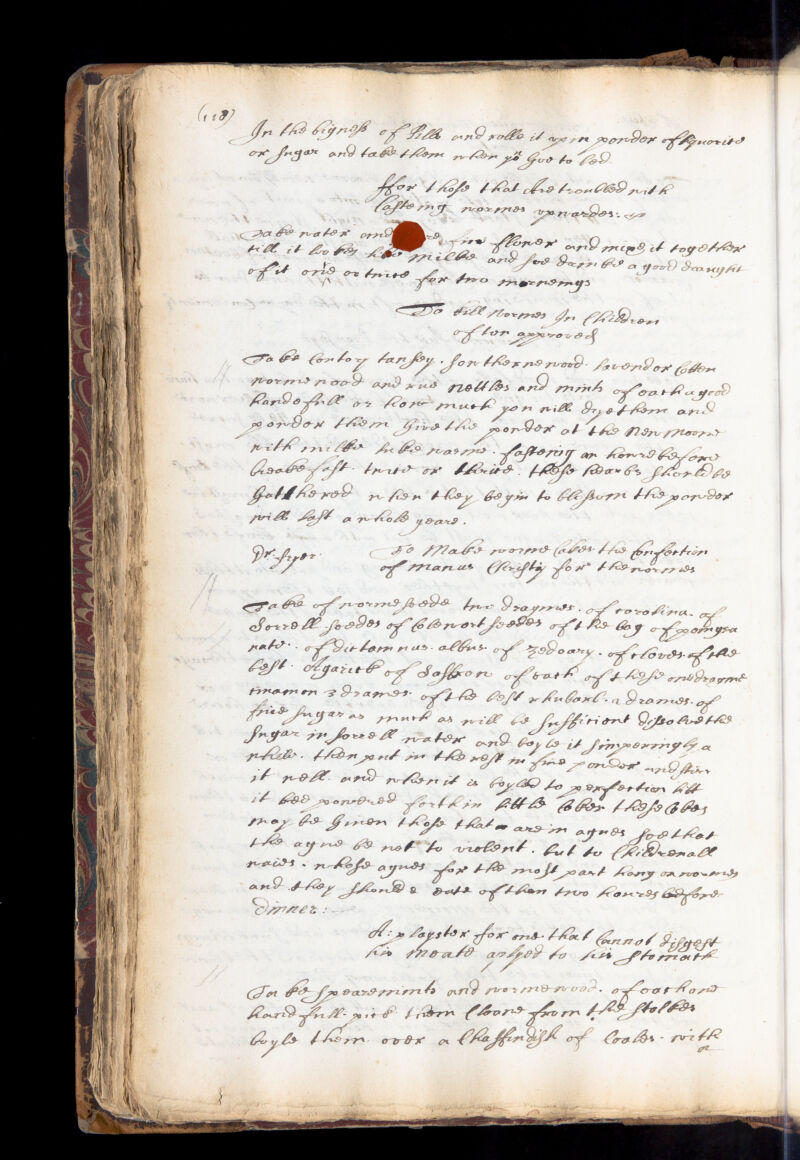 (118)
In the bigness of Pills and rolle it up in pouder of liquorice
or sugar and take them when yo goe to bed.
ffor those that Are troubled with
casteing wormes upwardes:
Take water and fine flower and mixe it together
till it lookes like milke and soe drinke a good draught
of it once or twice for two mornings
To kill wormes In Children
often approved
Take Centory tansey. Southernewood. lavender Cotten
wormewood and rue Nettles and mints of each a good
handefull or how much you will drye them and
pouder them Give the pouder at the New Moone
with milke luke warme. fasteing an houre before
breakefast. twice or thrice. these hearbs should be
Gathered when they begin to blossom the pouder
will last a whole yeare.
Dr. fryer To Make worme Cakes the Confection
of manus Christy for the wormes
Take of wormeseede two dragmes. of corolina. of
Sorrell seedes of Colewort seedes of the bag of pomgra
nate. of dictamnus albus of Zedoary. of cloves of the
best. Agarick of Saffron of each of these one dragme
cinamon 3 drames of the best rhubarb. 2 drames. of
fine sugar as much as will be sufficient disolve the
sugar in sorrell water and boyle it simperingly a
while. then put in the rest in fine pouder and stirr
it well. and when it is boyled to perfection lett
it bee powered forth in little Cakes these Cakes
may be Given those that are in agues soe that
the ague be not to violent. but to Children all
waies. whose agues for the most part hang on wormes
and they should eate of them two houres before
Dinner:
A: playster for one that Cannot disgest
his Meate aplyed to his Stomack
Take spearemints and wormewood. of each one
handfull. pick them Cleane from the stalkes
boyle them over a Chaffindish of Coales. with
a